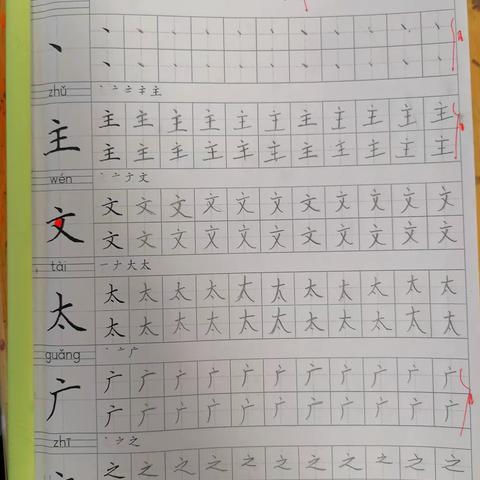 丶 丶 丶 丶 丶 丶 丶 丶 丶 丶 丶 丶
丶 丶 丶 丶 丶 丶 丶 丶 丶 丶 丶
zhǔ 丶 亠 主
主 主 主 主 主 主 主 主 主 主 主 主
主 主 主 主 主 主 主 主 主 主 主
wén 丶 亠 文
文 文 文 文 文 文 文 文 文 文 文 文
文 文 文 文 文 文 文 文 文 文 文
tài 一 ナ 大 太
太 太 太 太 太 太 太 太 太 太 太 太
太 太 太 太 太 太 太 太 太 太 太
guǎng 丶 亠 广
广 广 广 广 广 广 广 广 广 广 广 广
广 广 广 广 广 广 广 广 广 广 广
zhī 丶 之
之 之 之 之 之 之 之 之 之 之 之